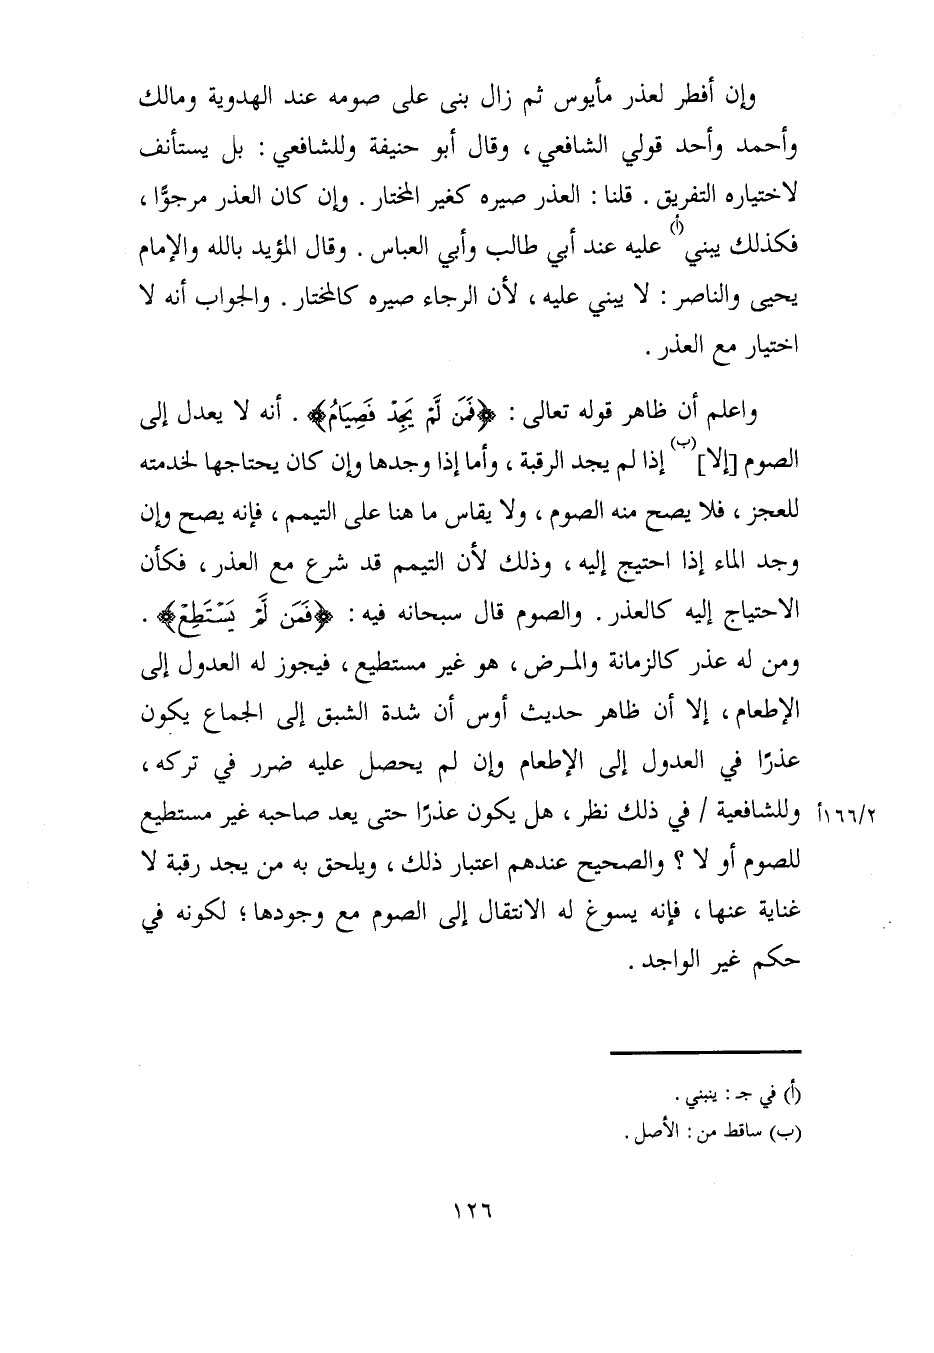 وإن أفطر لعذر مأيوس ثم زال بنى على صومه عند الهدوية ومالك
وأحمد وأحد قولي الشافعي ، وقال أبو حنيفة وللشافعي : بل يستأنف
لاختياره التفريق . قلنا : العذر صيره كغير المختار . وإن كان العذر مرجوًّا ،
فكذلك يبني(أ) عليه عند أبي طالب وأبي العباس . وقال المؤيد بالله والإمام
يحيى والناصر : لا يبني عليه ، لأن الرجاء صيره كالمختار . والجواب أنه لا
اختيار مع العذر .
واعلم أن ظاهر قوله تعالى : ﴿فَمَن لَّمْ يَجِدْ فَصِيَامُ﴾ . أنه لا يعدل إلى
الصوم [إلا](ب) إذا لم يجد الرقبة ، وأما إذا وجدها وإن كان يحتاجها لخدمته
للعجز ، فلا يصح منه الصوم ، ولا يقاس ما هنا على التيمم ، فإنه يصح وإن
وجد الماء إذا احتيج إليه ، وذلك لأن التيمم قد شرع مع العذر ، فكأن
الاحتياج إليه كالعذر . والصوم قال سبحانه فيه : ﴿فَمَن لَّمْ يَسْتَطِعْ﴾ .
ومن له عذر كالزمانة والمرض ، هو غير مستطيع ، فيجوز له العدول إلى
الإطعام ، إلا أن ظاهر حديث أوس أن شدة الشبق إلى الجماع يكون
عذرًا في العدول إلى الإطعام وإن لم يحصل عليه ضرر في تركه ،
وللشافعية / في ذلك نظر ، هل يكون عذرًا حتى يعد صاحبه غير مستطيع ٢/١٦٦أ
للصوم أو لا ؟ والصحيح عندهم اعتبار ذلك ، ويلحق به من يجد رقبة لا
غناية عنها ، فإنه يسوغ له الانتقال إلى الصوم مع وجودها ؛ لكونه في
حكم غير الواجد .
(أ) في جـ : ينبني .
(ب) ساقط من : الأصل .
١٢٦